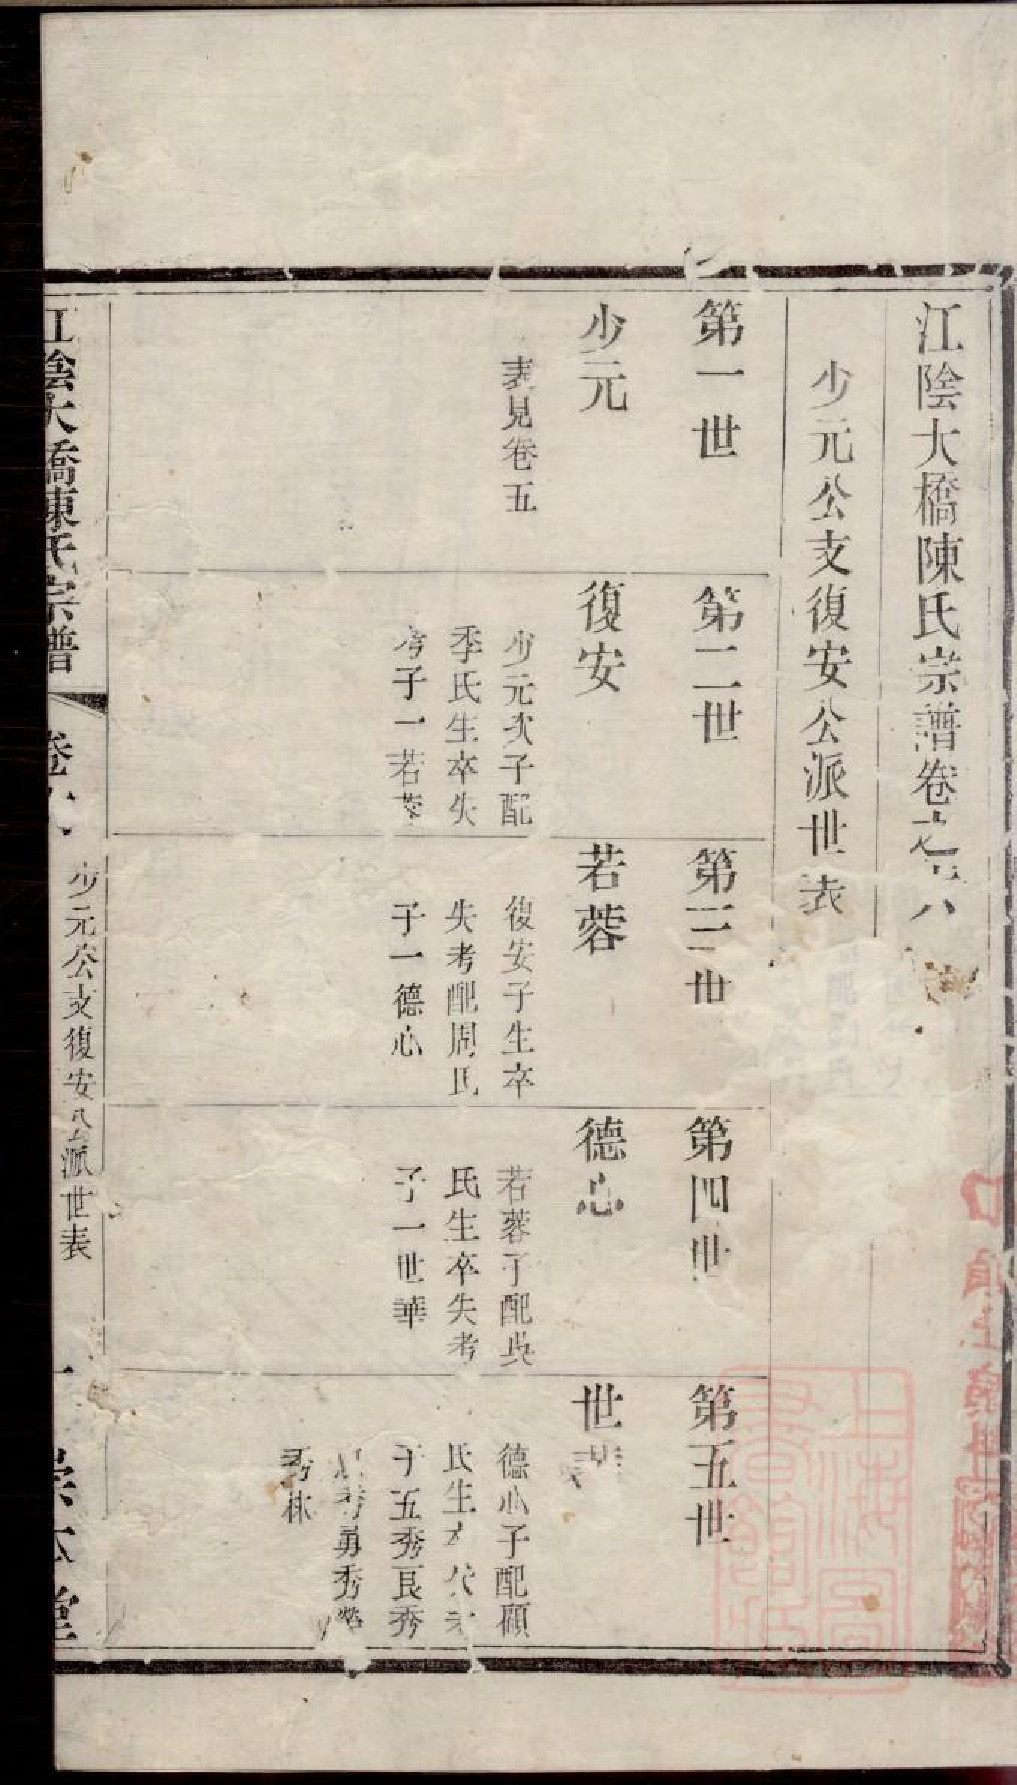 江陰大橋陳氏宗譜卷之八
少元公支復安公派世表
第一世
少元
表見卷五
第二世
復安
少元次子配
季氏生卒失
考子一若蓉
第三世
若蓉
復安子生卒
失考配周氏
子一德心
第四世
德心
若蓉子配吳
氏生卒失考
子一世華
第五世
世華
德心子配顧
氏生卒失考
子五秀良秀
秀勇秀
秀林
江陰大橋陳氏宗譜
卷八
少元公支復安公派世表
一
崇本堂
上海圖書館藏